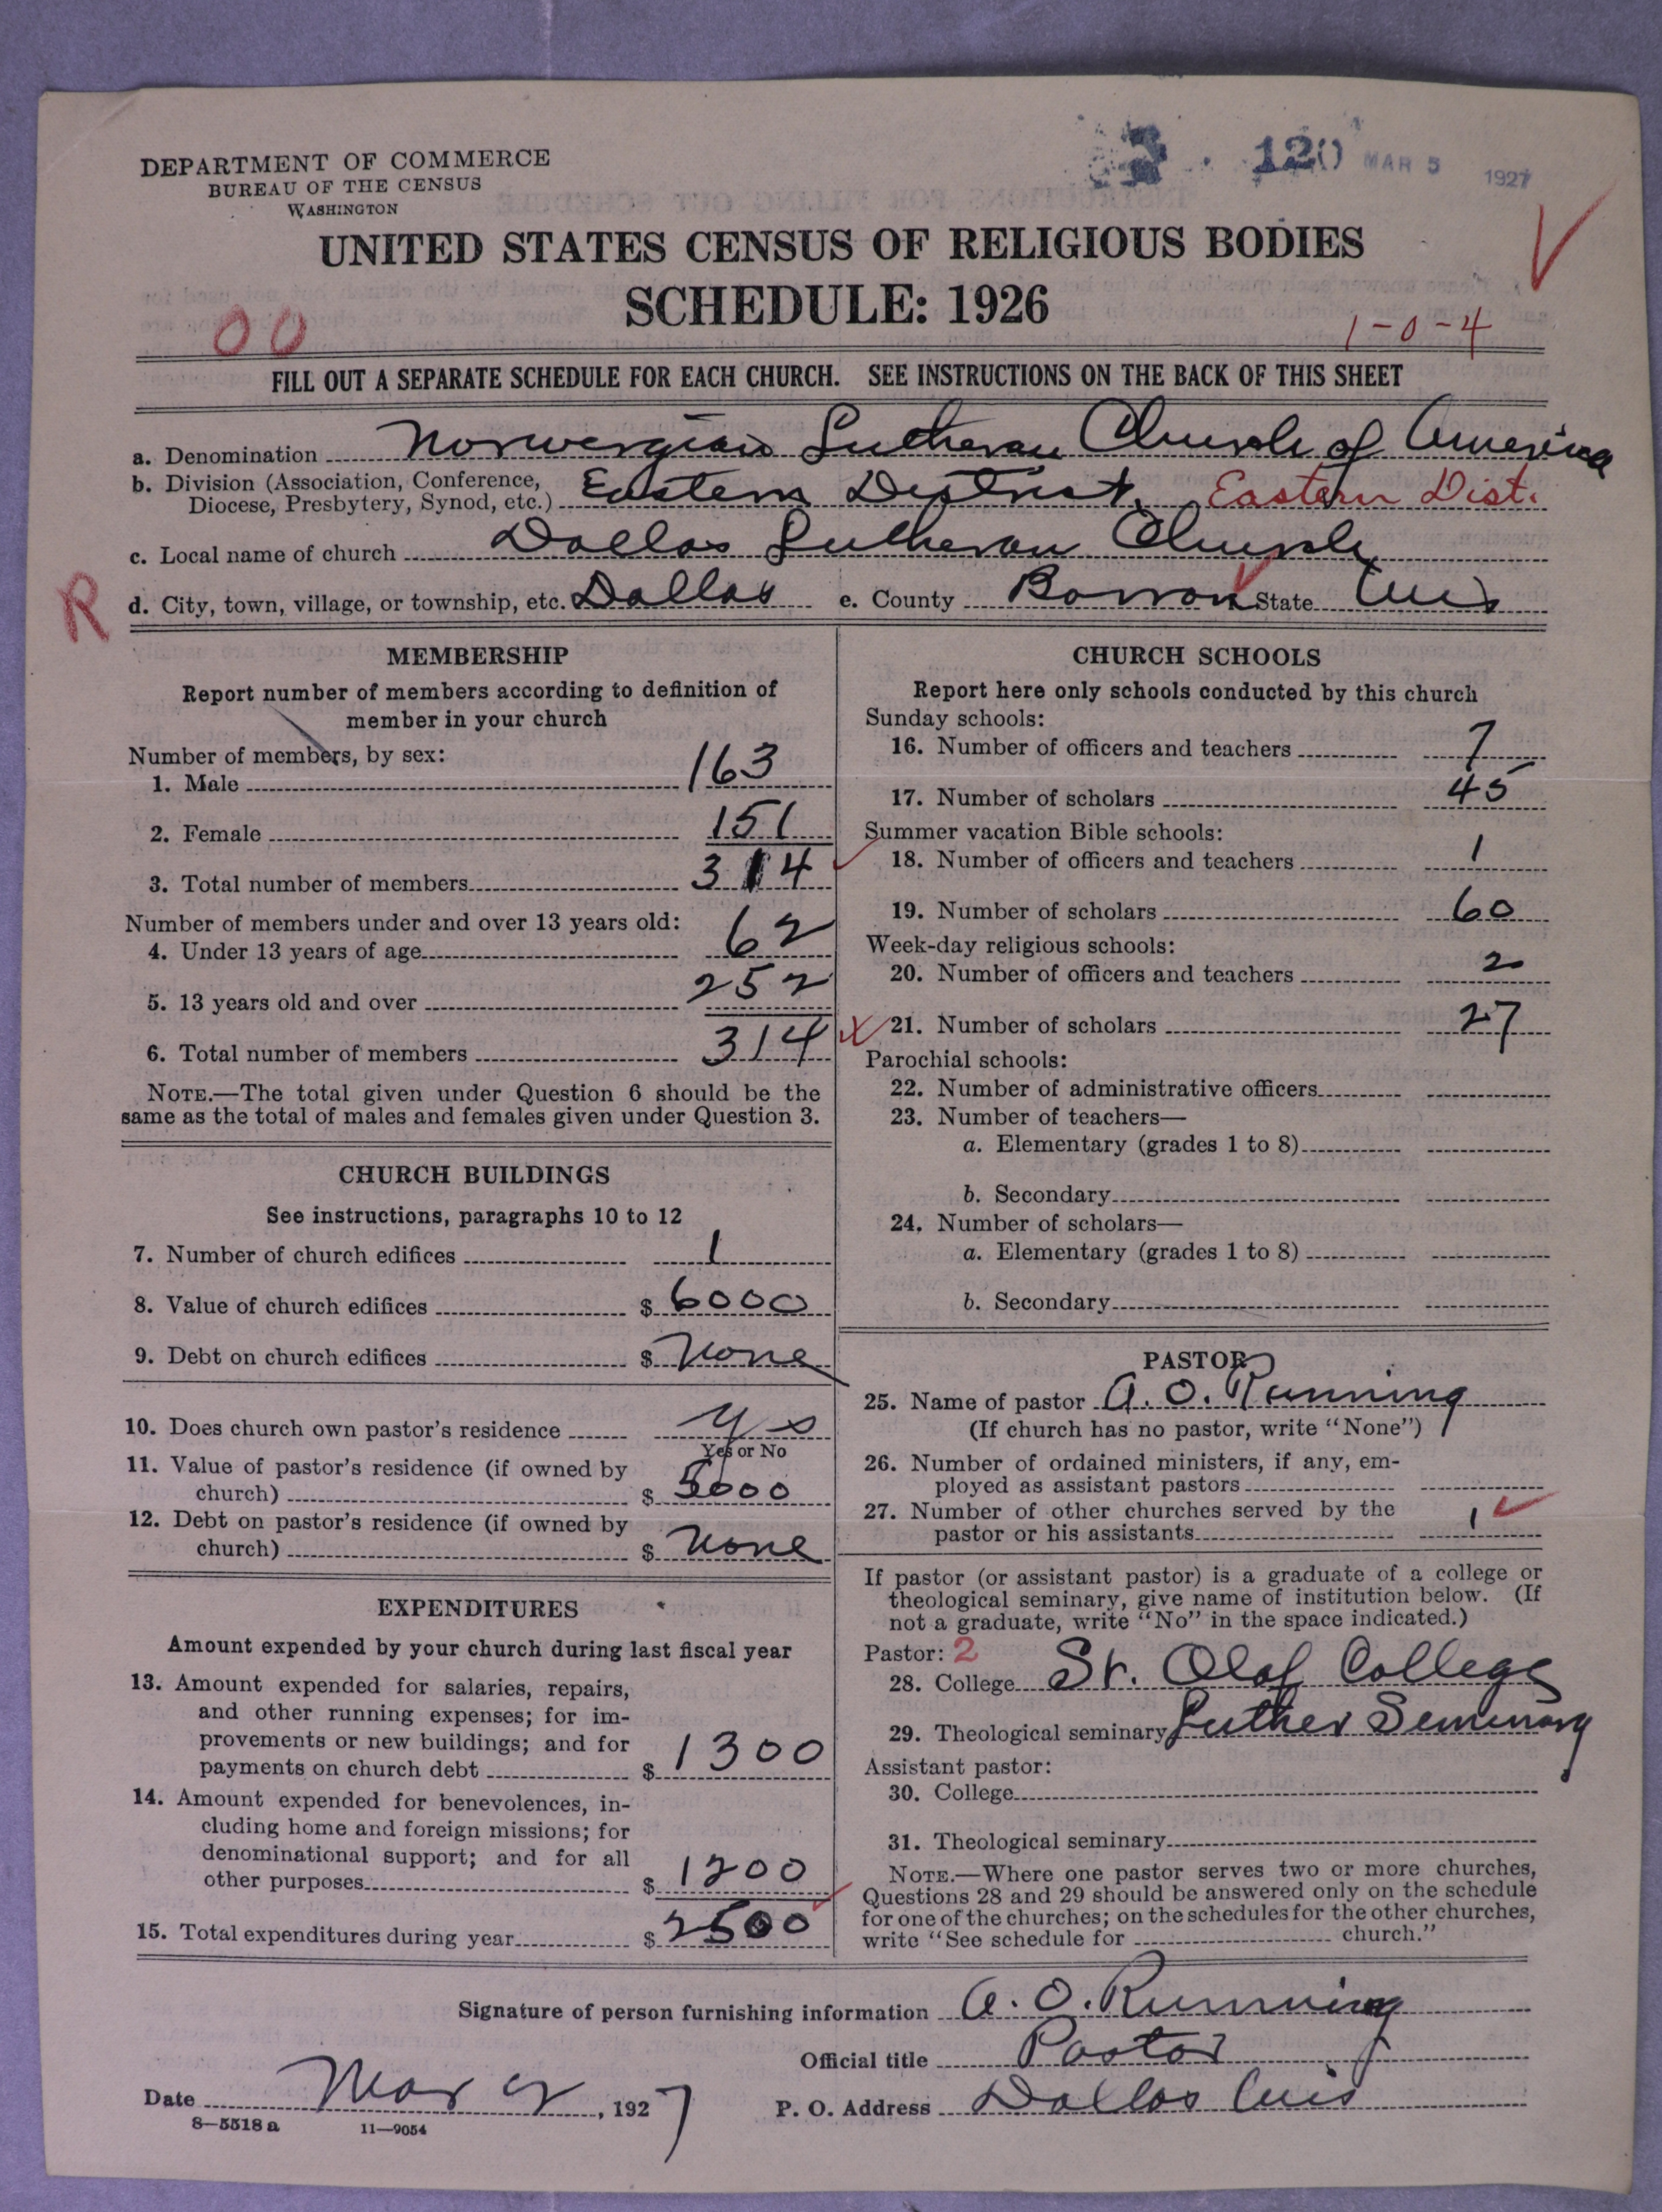 DEPARTMENT OF COMMERCE
BUREAU OF THE CENSUS
WASHINGTON
3 . 120 MAR 5 1927
UNITED STATES CENSUS OF RELIGIOUS BODIES
SCHEDULE: 1926
00
1-0-4
FILL OUT A SEPARATE SCHEDULE FOR EACH CHURCH. SEE INSTRUCTIONS ON THE BACK OF THIS SHEET
a. Denomination Norwegian Lutheran Church of America
b. Division (Association, Conference,
Diocese, Presbytery, Synod, etc.) Eastern District. Eastern Dist.
c. Local name of church Dallas Lutheran Church
R
d. City, town, village, or township, etc. Dallas e. County Barron State Wis
MEMBERSHIP
Report number of members according to definition of
member in your church
Number of members, by sex:
1. Male 163
2. Female 151
3. Total number of members 314
Number of members under and over 13 years old:
4. Under 13 years of age 62
5. 13 years old and over 252
6. Total number of members 314
NOTE.—The total given under Question 6 should be the
same as the total of males and females given under Question 3.
CHURCH BUILDINGS
See instructions, paragraphs 10 to 12
7. Number of church edifices 1
8. Value of church edifices $ 6000
9. Debt on church edifices $ None
10. Does church own pastor's residence Yes
Yes or No
11. Value of pastor's residence (if owned by
church) $ 5000
12. Debt on pastor's residence (if owned by
church) $ None
EXPENDITURES
Amount expended by your church during last fiscal year
13. Amount expended for salaries, repairs,
and other running expenses; for im-
provements or new buildings; and for
payments on church debt $ 1300
14. Amount expended for benevolences, in-
cluding home and foreign missions; for
denominational support; and for all
other purposes $ 1200
15. Total expenditures during year $ 2500
CHURCH SCHOOLS
Report here only schools conducted by this church
Sunday schools:
16. Number of officers and teachers 7
17. Number of scholars 45
Summer vacation Bible schools:
18. Number of officers and teachers 1
19. Number of scholars 60
Week-day religious schools:
20. Number of officers and teachers 2
21. Number of scholars 27
Parochial schools:
22. Number of administrative officers
23. Number of teachers—
a. Elementary (grades 1 to 8)
b. Secondary
24. Number of scholars—
a. Elementary (grades 1 to 8)
b. Secondary
PASTOR
25. Name of pastor A. O. Running
(If church has no pastor, write "None")
26. Number of ordained ministers, if any, em-
ployed as assistant pastors
27. Number of other churches served by the
pastor or his assistants 1
If pastor (or assistant pastor) is a graduate of a college or
theological seminary, give name of institution below. (If
not a graduate, write "No" in the space indicated.)
Pastor: 2
28. College St. Olaf College
29. Theological seminary Luther Seminary
Assistant pastor:
30. College
31. Theological seminary
NOTE.—Where one pastor serves two or more churches,
Questions 28 and 29 should be answered only on the schedule
for one of the churches; on the schedules for the other churches,
write "See schedule for church."
Signature of person furnishing information A. O. Running
Official title Pastor
Date Mar 2, 1927 P. O. Address Dallas Wis
8—5518 a 11—9054